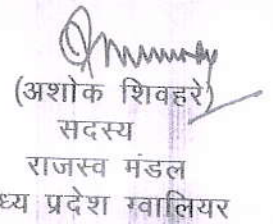 (अशोक शिवहरे)
सदस्य
राजस्व मंडल
ध्य प्रदेश ग्वालियर